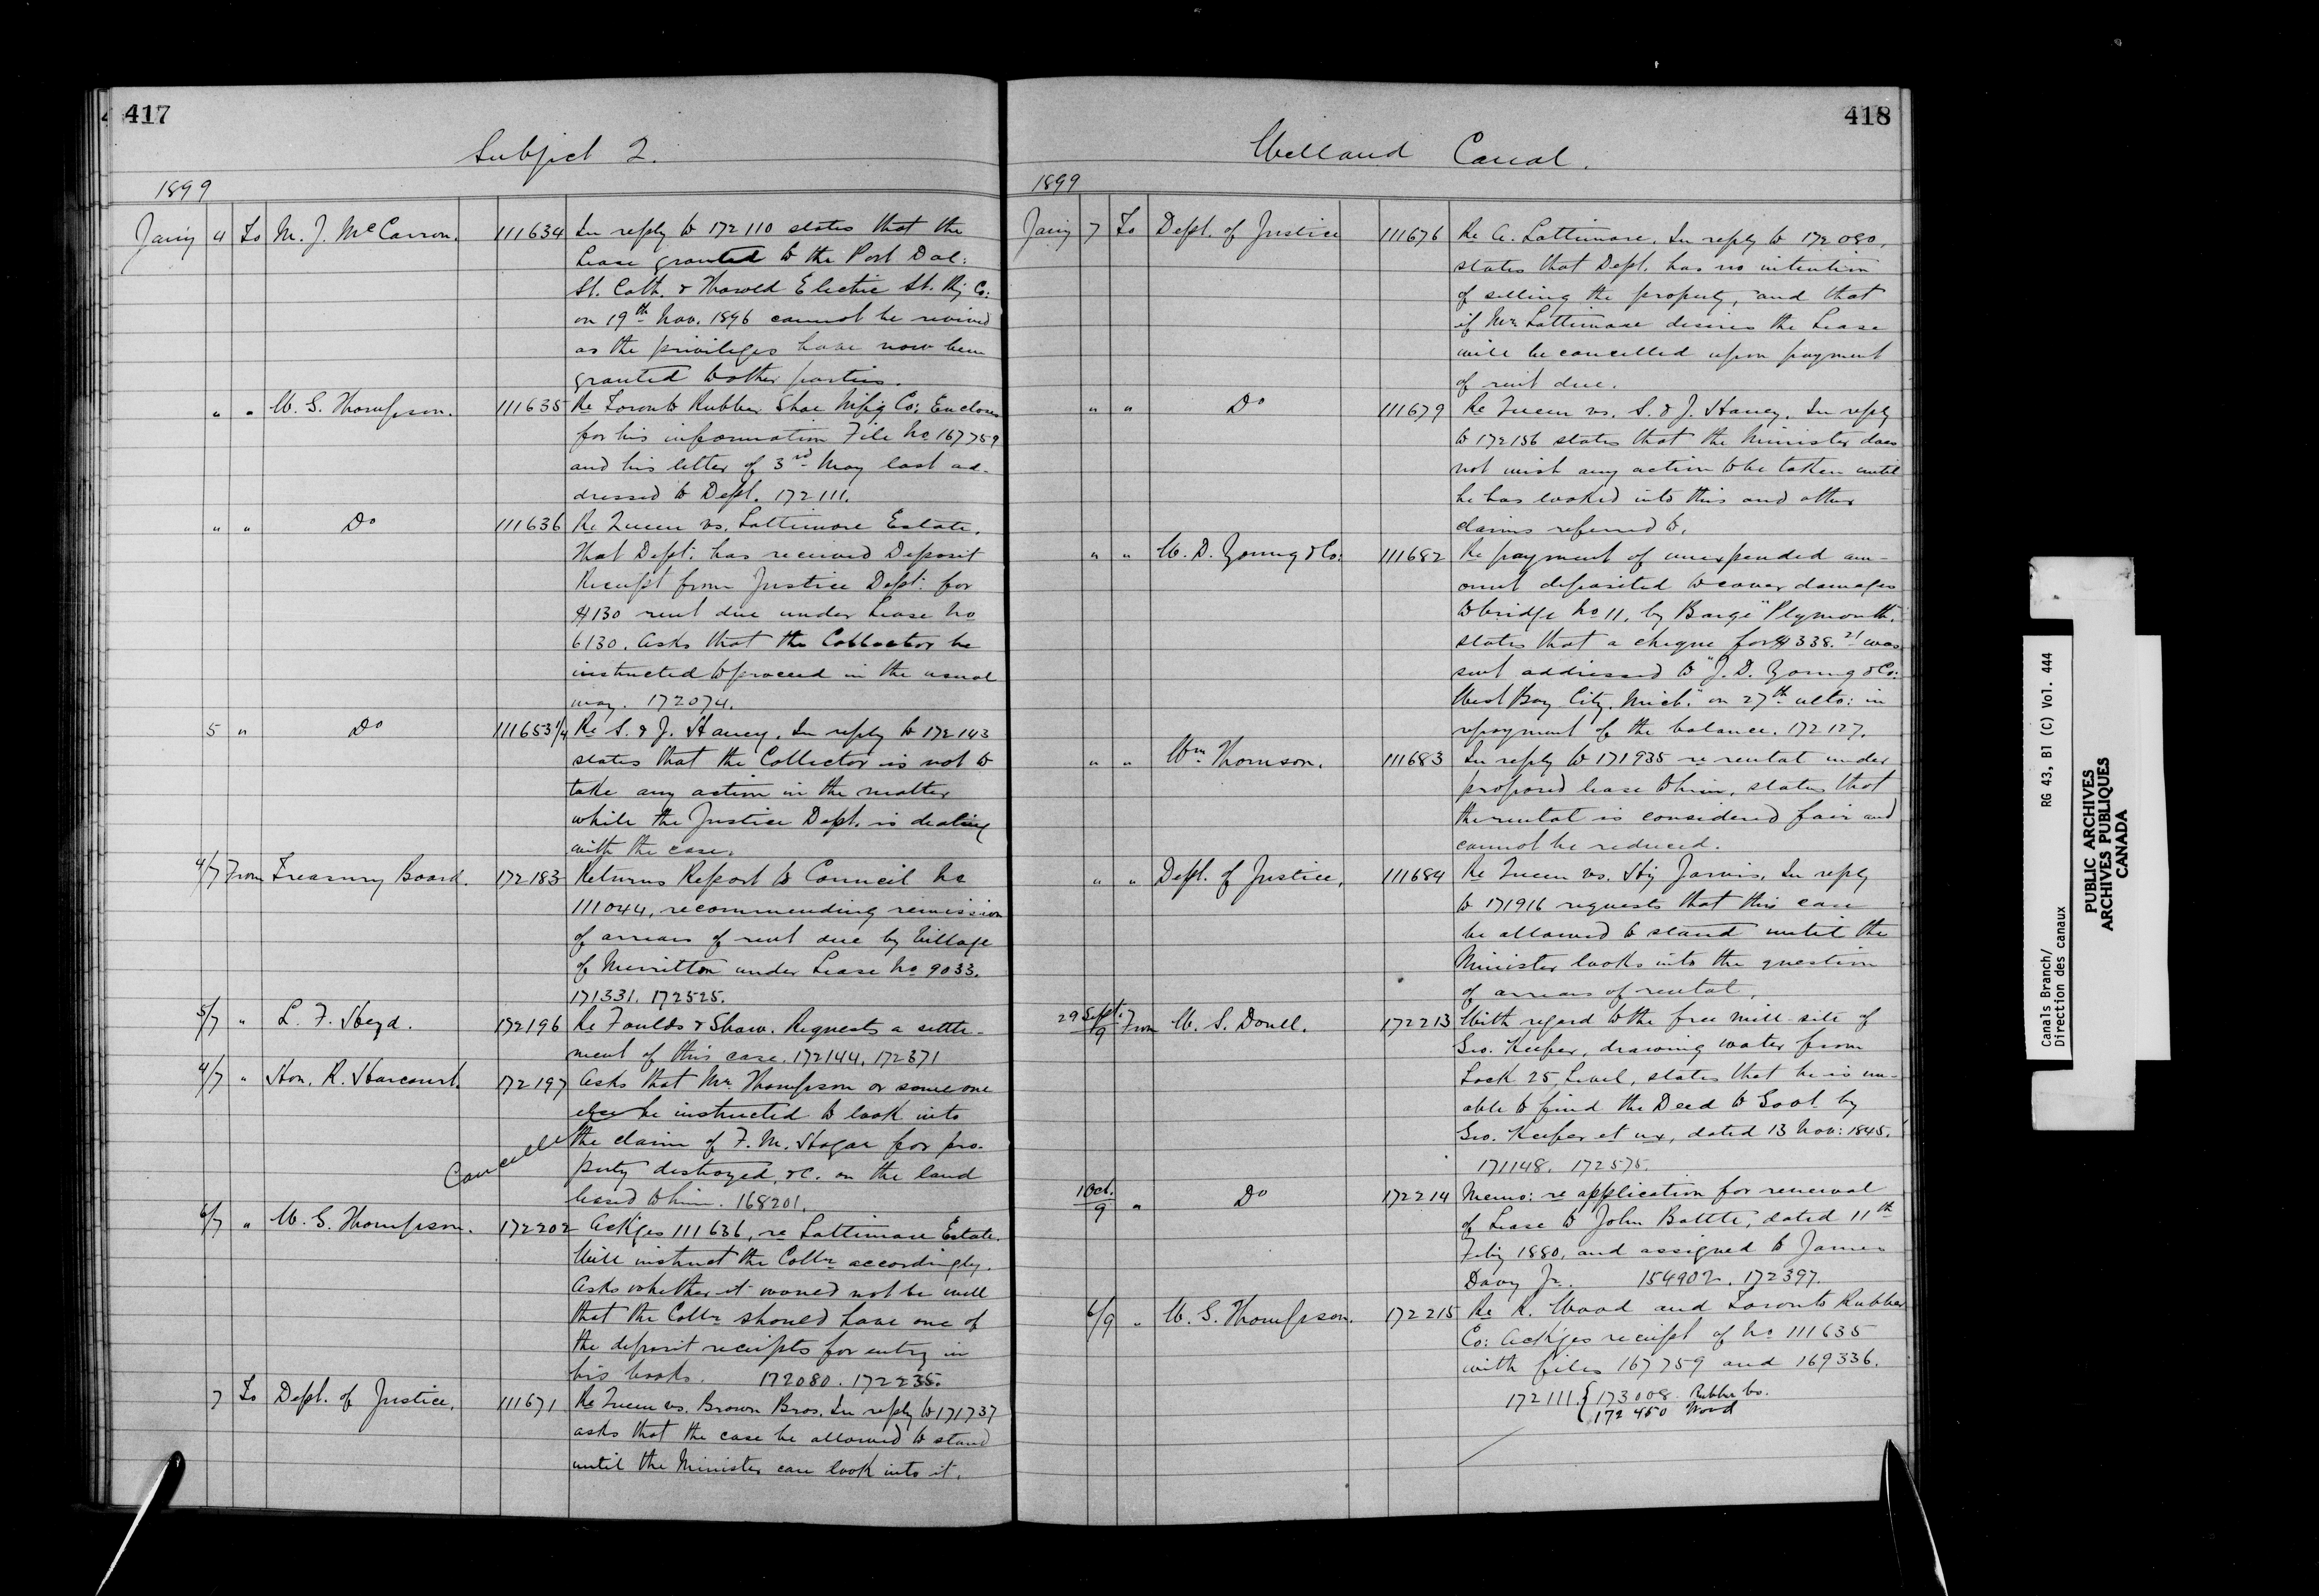 417
Subject 2.
1899
Jany 4 To M. J. McCarron. 111634 In reply to 172110 states that the
Lease granted to the Port Dal:
St. Cath. & Thorold Electric St. Ry Co:
on 19th Nov. 1896 cannot be revived
as the privileges have now been
granted to other parties.
" " W. G. Thompson. 111635 Re Toronto Rubber Shoe Mf'g Co: Encloses
for his information File No 167759
and his letter of 3rd May last ad-
dressed to Dept. 172111.
" " Do 111636 Re Queen vs. Lattimore Estate.
That Dept. has received Deposit
Receipt from Justice Dept. for
$130 rent due under Lease No
6130. Asks that the Collector be
instructed to proceed in the usual
way. 172074.
5 " Do 111653 1/4 Re S. & J. Haney. In reply to 172143
states that the Collector is not to
take any action in the matter
while the Justice Dept. is dealing
with the case.
4/7 From Treasury Board. 172183 Returns Report to Council No
111044, recommending remission
of arrears of rent due by Village
of Merritton under Lease No 9033.
171331. 172525.
5/7 " L. F. Heyd. 172196 Re Foulds & Shaw. Requests a settle-
ment of this case. 172144. 172371
4/7 " Hon. R. Harcourt. 172197 Asks that Mr. Thompson or someone
else be instructed to look into
the claim of F. M. Hagar for pro-
Cancelled
perty destroyed, &c. on the land
leased to him. 168201.
6/7 " W. G. Thompson. 172202 Ack'ges 111636, re Lattimore Estate.
Will instruct the Collr accordingly.
Asks whether it would not be well
that the Collr should have one of
the deposit receipts for entry in
his books. 172080. 172235.
7 To Dept. of Justice. 111671 Re Queen vs. Brown Bros. In reply to 171737
asks that the case be allowed to stand
until the Minister can look into it.
418
Welland Canal.
1899
Jany 7 To Dept. of Justice 111676 Re A. Lattimore. In reply to 172080,
states that Dept. has no intention
of selling the property, and that
if Mr. Lattimore desires the Lease
will be cancelled upon payment
of rent due.
" " Do 111679 Re Queen vs. S. & J. Haney. In reply
to 172156 states that the Minister does
not wish any action to be taken until
he has looked into this and other
claims referred to.
" " W. D. Young & Co: 111682 Re payment of unexpended am-
ount deposited to cover damages
to bridge No 11, by Barge "Plymouth,
states that a cheque for $338.21 was
sent addressed to "J. D. Young & Co:
West Bay City, Mich." on 27th ulto: in
repayment of the balance. 172127.
" " Wm. Thomson. 111683 In reply to 171935 re rental under
proposed lease to him, states that
the rental is considered fair and
cannot be reduced.
" " Dept. of Justice. 111684 Re Queen vs. Hy Jarvis. In reply
to 171916 requests that this case
be allowed to stand until the
Minister looks into the question
of arrears of rental.
29 Sept./9 From W. S. Doull. 172213 With regard to the free mill site of
Geo. Keefer, drawing water from
Lock 25 Level, states that he is un-
able to find the Deed to Govt. by
Geo. Keefer et ux, dated 13 Nov: 1845.
171148. 172575.
1 Oct./9 " Do 172214 Memo: re application for renewal
of Lease to John Battle, dated 11th
Feby 1880, and assigned to James
Davy Jr. 154902. 172397.
6/9 " W. G. Thompson. 172215 Re R. Wood and Toronto Rubber
Co: Ack'ges receipt of No 111635
with files 167759 and 169336.
172111. { 173008 Rubber Co.
172450 Wood
Canals Branch/
Direction des canaux
RG 43, B1 (C) Vol. 444
PUBLIC ARCHIVES
ARCHIVES PUBLIQUES
CANADA